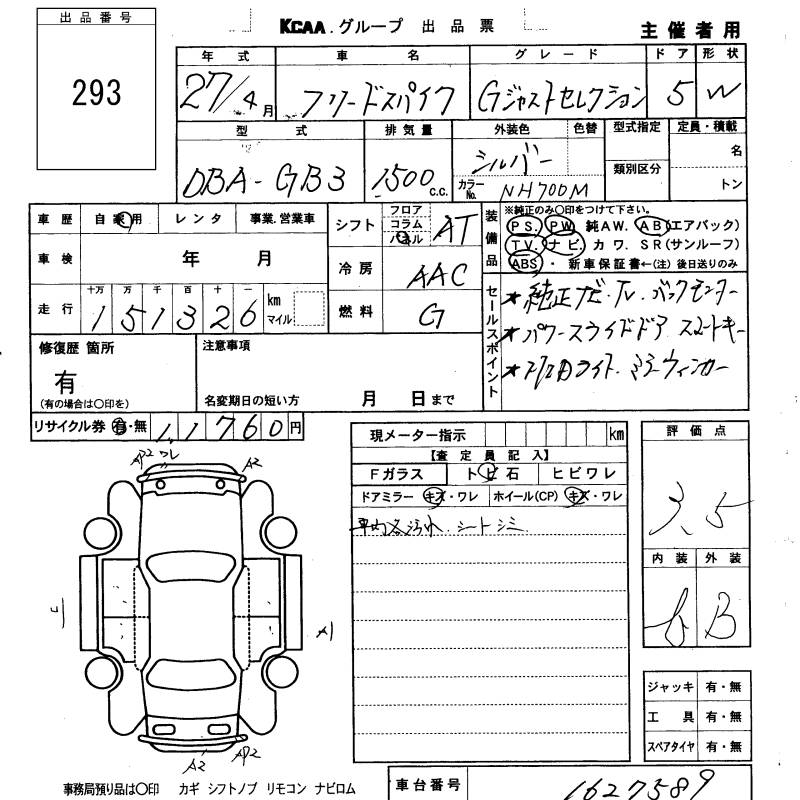 出品番号
293
KCAA.グループ 出品票
主催者用
年式 車名 グレード ドア 形状
27/4月 フリードスパイク Gジャストセレクション 5 W
型式 排気量 外装色 色替 型式指定 定員・積載
DBA-GB3 1500c.c. シルバー 類別区分 名
カラーNo. NH700M トン
車歴 自家用 レンタ 事業.営業車
シフト フロア コラム パネル AT
装備品 ※純正のみ○印をつけて下さい。
PS. PW 純AW. AB(エアバック)
TV. ナビ. カワ. SR(サンルーフ)
ABS・新車保証書←(注)後日送りのみ
車検 年 月
冷房 AAC
走行 十万 万 千 百 十 一
151326 km マイル
燃料 G
セールスポイント
★純正ナビ・TV. バックモニター
★パワースライドドア スマートキー
ライト. ミラーウィンカー
修復歴 箇所
有
(有の場合は○印を)
注意事項
名変期日の短い方 月 日まで
リサイクル券 有・無 11760円
現メーター指示 km
【査定員記入】
Fガラス トビ石 ヒビワレ
ドアミラー キズ・ワレ ホイール(CP) キズ・ワレ
シートシミ
評価点
3.5
内装 外装
B
AP2 ワレ A2
A1
A2 AP2
ジャッキ 有・無
工具 有・無
スペアタイヤ 有・無
事務局預り品は○印 カギ シフトノブ リモコン ナビロム
車台番号 1627589